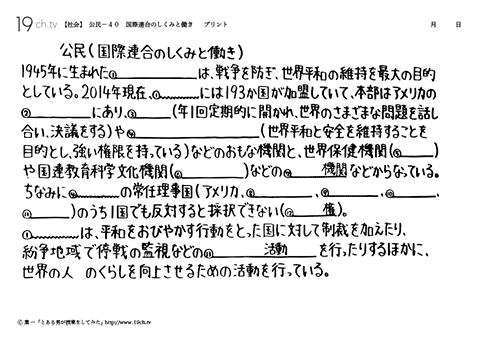 19ch.tv 【社会】 公民－40 国際連合のしくみと働き プリント 月 日
公民(国際連合のしくみと働き)
1945年に生まれた①は、戦争を防ぎ、世界平和の維持を最大の目的
としている。2014年現在、①には193か国が加盟していて、本部はアメリカの
②にあり、③(年1回定期的に開かれ、世界のさまざまな問題を話し
合い、決議をする)や④(世界平和と安全を維持することを
目的とし、強い権限を持っている)などのおもな機関と、世界保健機関(⑤)
や国連教育科学文化機関(⑥)などの⑦機関などからなっている。
ちなみに④の常任理事国(アメリカ、⑧、⑨、⑩、
⑪)のうち1国でも反対すると採択できない(⑫権)。
①は、平和をおびやかす行動をとった国に対して制裁を加えたり、
紛争地域で停戦の監視などの⑬活動を行ったりするほかに、
世界の人 のくらしを向上させるための活動を行っている。
© 葉一「とある男が授業をしてみた」http://www.19ch.tv